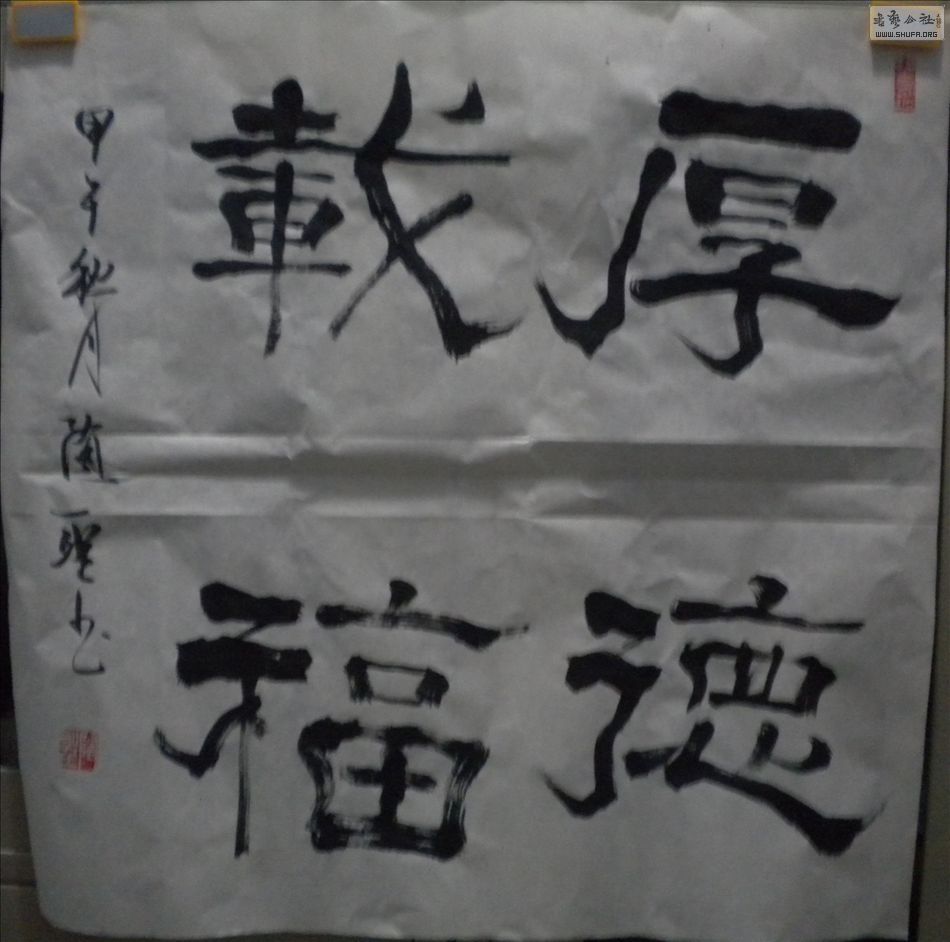 厚德
載福
甲午秋月蘭聖书
書艺公社
WWW.SHUFA.ORG